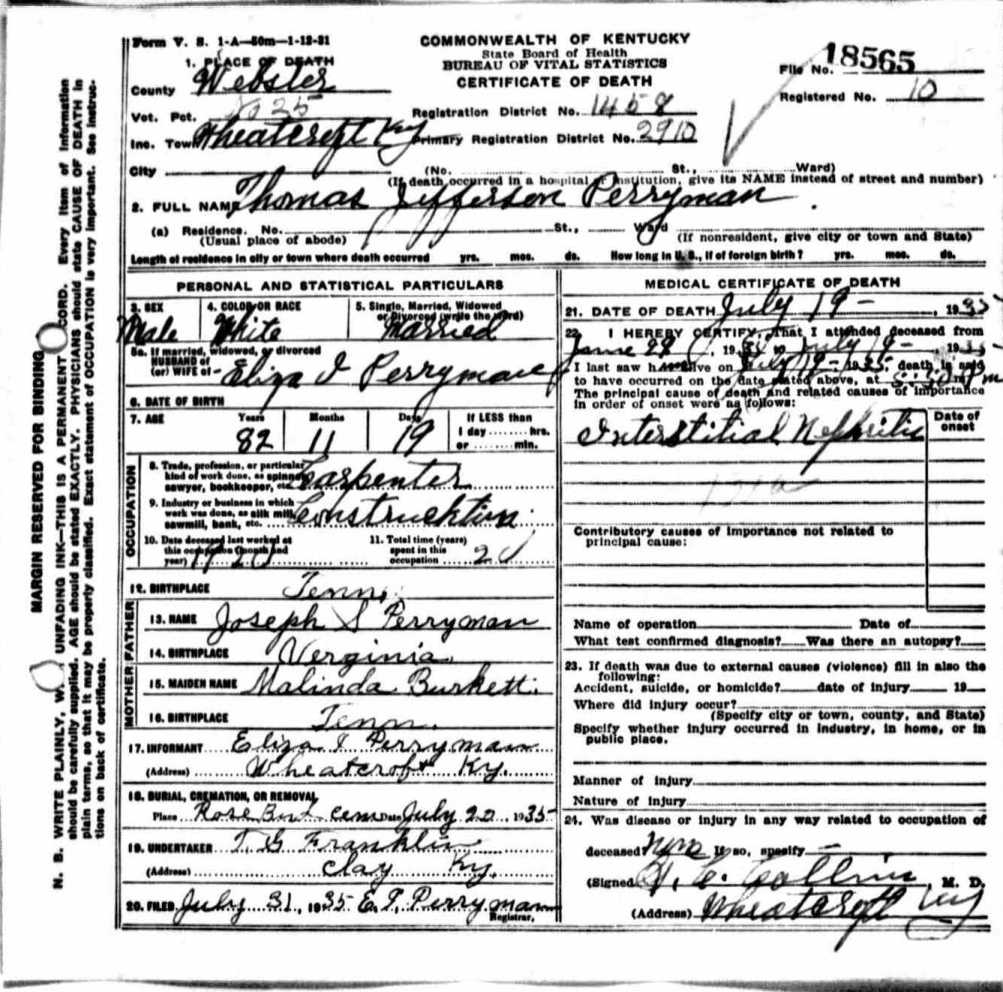 Form V. S. 1-A—50m—1-12-31
COMMONWEALTH OF KENTUCKY
State Board of Health
BUREAU OF VITAL STATISTICS
CERTIFICATE OF DEATH
File No. 18565
Registered No. 10
1. PLACE OF DEATH
County Webster
Vot. Pct. 25
Registration District No. 1458
Inc. Town Wheatcroft Ky Primary Registration District No. 2910
City (No. St., Ward)
(If death occurred in a hospital or institution, give its NAME instead of street and number)
2. FULL NAME Thomas Jefferson Perryman
(a) Residence. No. St., Ward
(Usual place of abode) (If nonresident, give city or town and State)
Length of residence in city or town where death occurred yrs. mos. ds. How long in U. S., if of foreign birth? yrs. mos. ds.
PERSONAL AND STATISTICAL PARTICULARS
3. SEX 4. COLOR OR RACE 5. Single, Married, Widowed
or Divorced (write the word)
Male White Married
5a. If married, widowed, or divorced
HUSBAND of
(or) WIFE of Eliza I Perryman
6. DATE OF BIRTH
7. AGE Years Months Days If LESS than
1 day........hrs.
or ........min.
82 11 19
OCCUPATION
8. Trade, profession, or particular
kind of work done, as spinner,
sawyer, bookkeeper, etc. Carpenter
9. Industry or business in which
work was done, as silk mill,
sawmill, bank, etc. Construcktion
10. Date deceased last worked at
this occupation (month and
year) 1920
11. Total time (years)
spent in this
occupation 20
12. BIRTHPLACE Tenn.
FATHER
13. NAME Joseph S Perryman
14. BIRTHPLACE Verginia
MOTHER
15. MAIDEN NAME Malinda Burkett.
16. BIRTHPLACE Tenn.
17. INFORMANT Eliza I Perryman
(Address) Wheatcroft Ky.
18. BURIAL, CREMATION, OR REMOVAL
Place Rose Bud cem Date July 20 1935
19. UNDERTAKER T. G Franklin
(Address) Clay Ky.
20. FILED July 31, 1935 E. P. Perryman
Registrar.
MEDICAL CERTIFICATE OF DEATH
21. DATE OF DEATH July 19 - , 1935
22. I HEREBY CERTIFY, That I attended deceased from
June 29, 19 to July 19 - 1935
I last saw h alive on July 19 - 1935, death is said
to have occurred on the date stated above, at 5:30 P m
The principal cause of death and related causes of importance
in order of onset were as follows:
Date of
onset
Interstitial Nephritis
Contributory causes of importance not related to
principal cause:
Name of operation Date of
What test confirmed diagnosis? Was there an autopsy?
23. If death was due to external causes (violence) fill in also the
following:
Accident, suicide, or homicide? date of injury 19
Where did injury occur?
(Specify city or town, county, and State)
Specify whether injury occurred in industry, in home, or in
public place.
Manner of injury
Nature of injury
24. Was disease or injury in any way related to occupation of
deceased? If so, specify
(Signed) Collins M. D.
(Address) Wheatcroft Ky
MARGIN RESERVED FOR BINDING
N. B. WRITE PLAINLY, W UNFADING INK—THIS IS A PERMANENT CORD. Every item of information
should be carefully supplied. AGE should be stated EXACTLY. PHYSICIANS should state CAUSE OF DEATH in
plain terms, so that it may be properly classified. Exact statement of OCCUPATION is very important. See instruc-
tions on back of certificate.